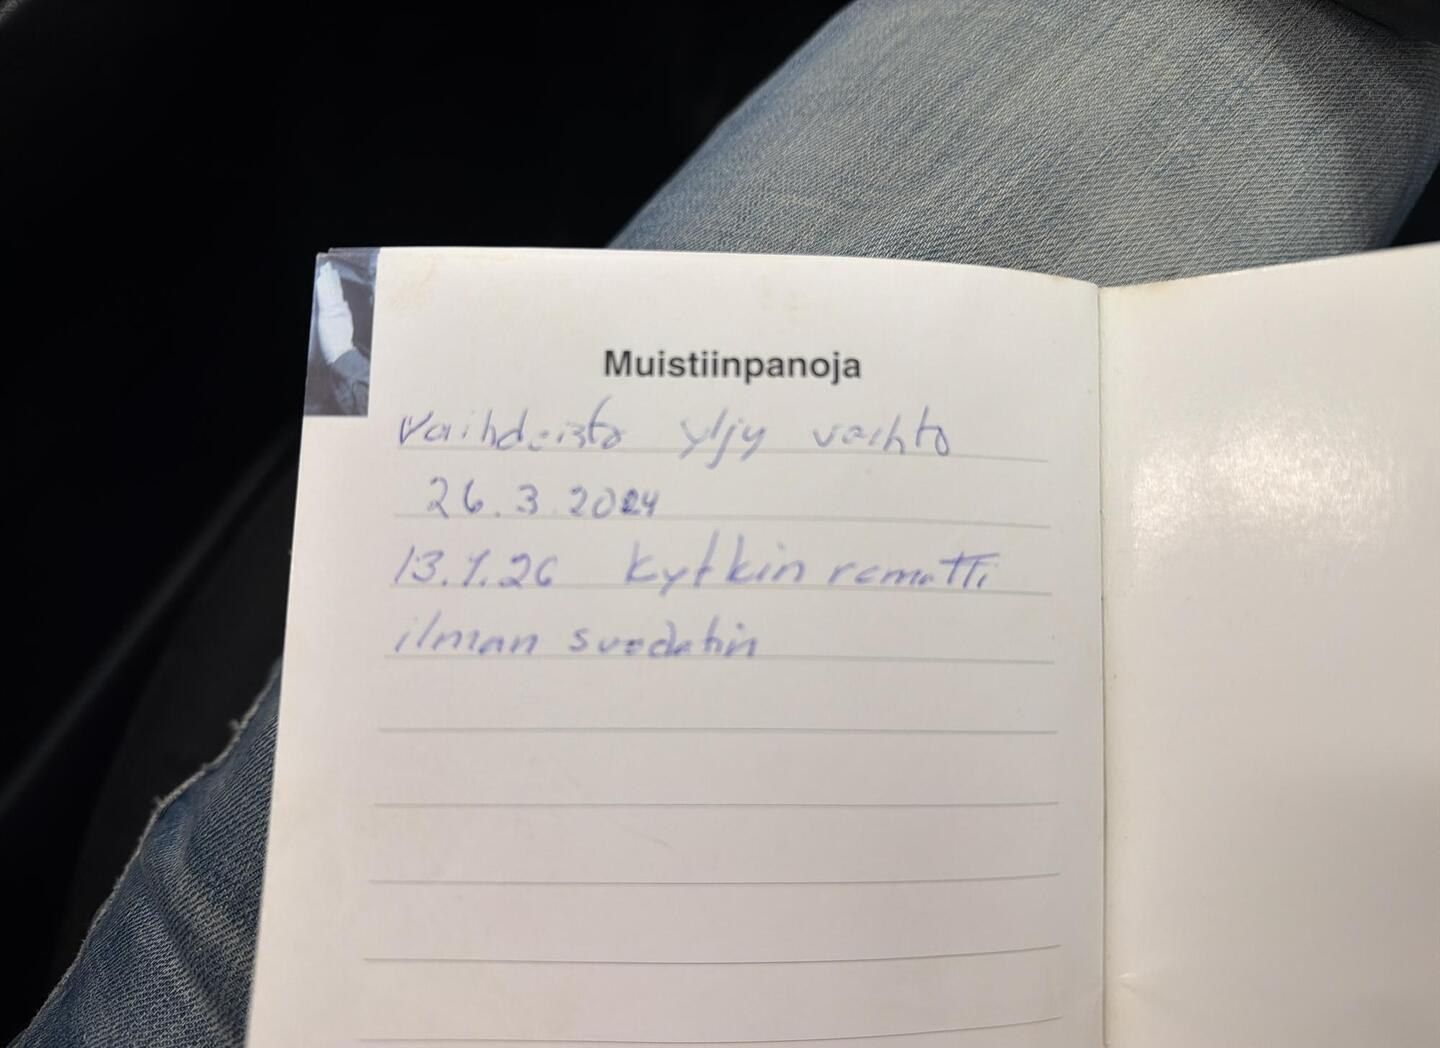 Muistiinpanoja
Vaihdeisto yljy vaihto
26.3.2024
13.1.26 Kytkin rematti
ilman suodatin